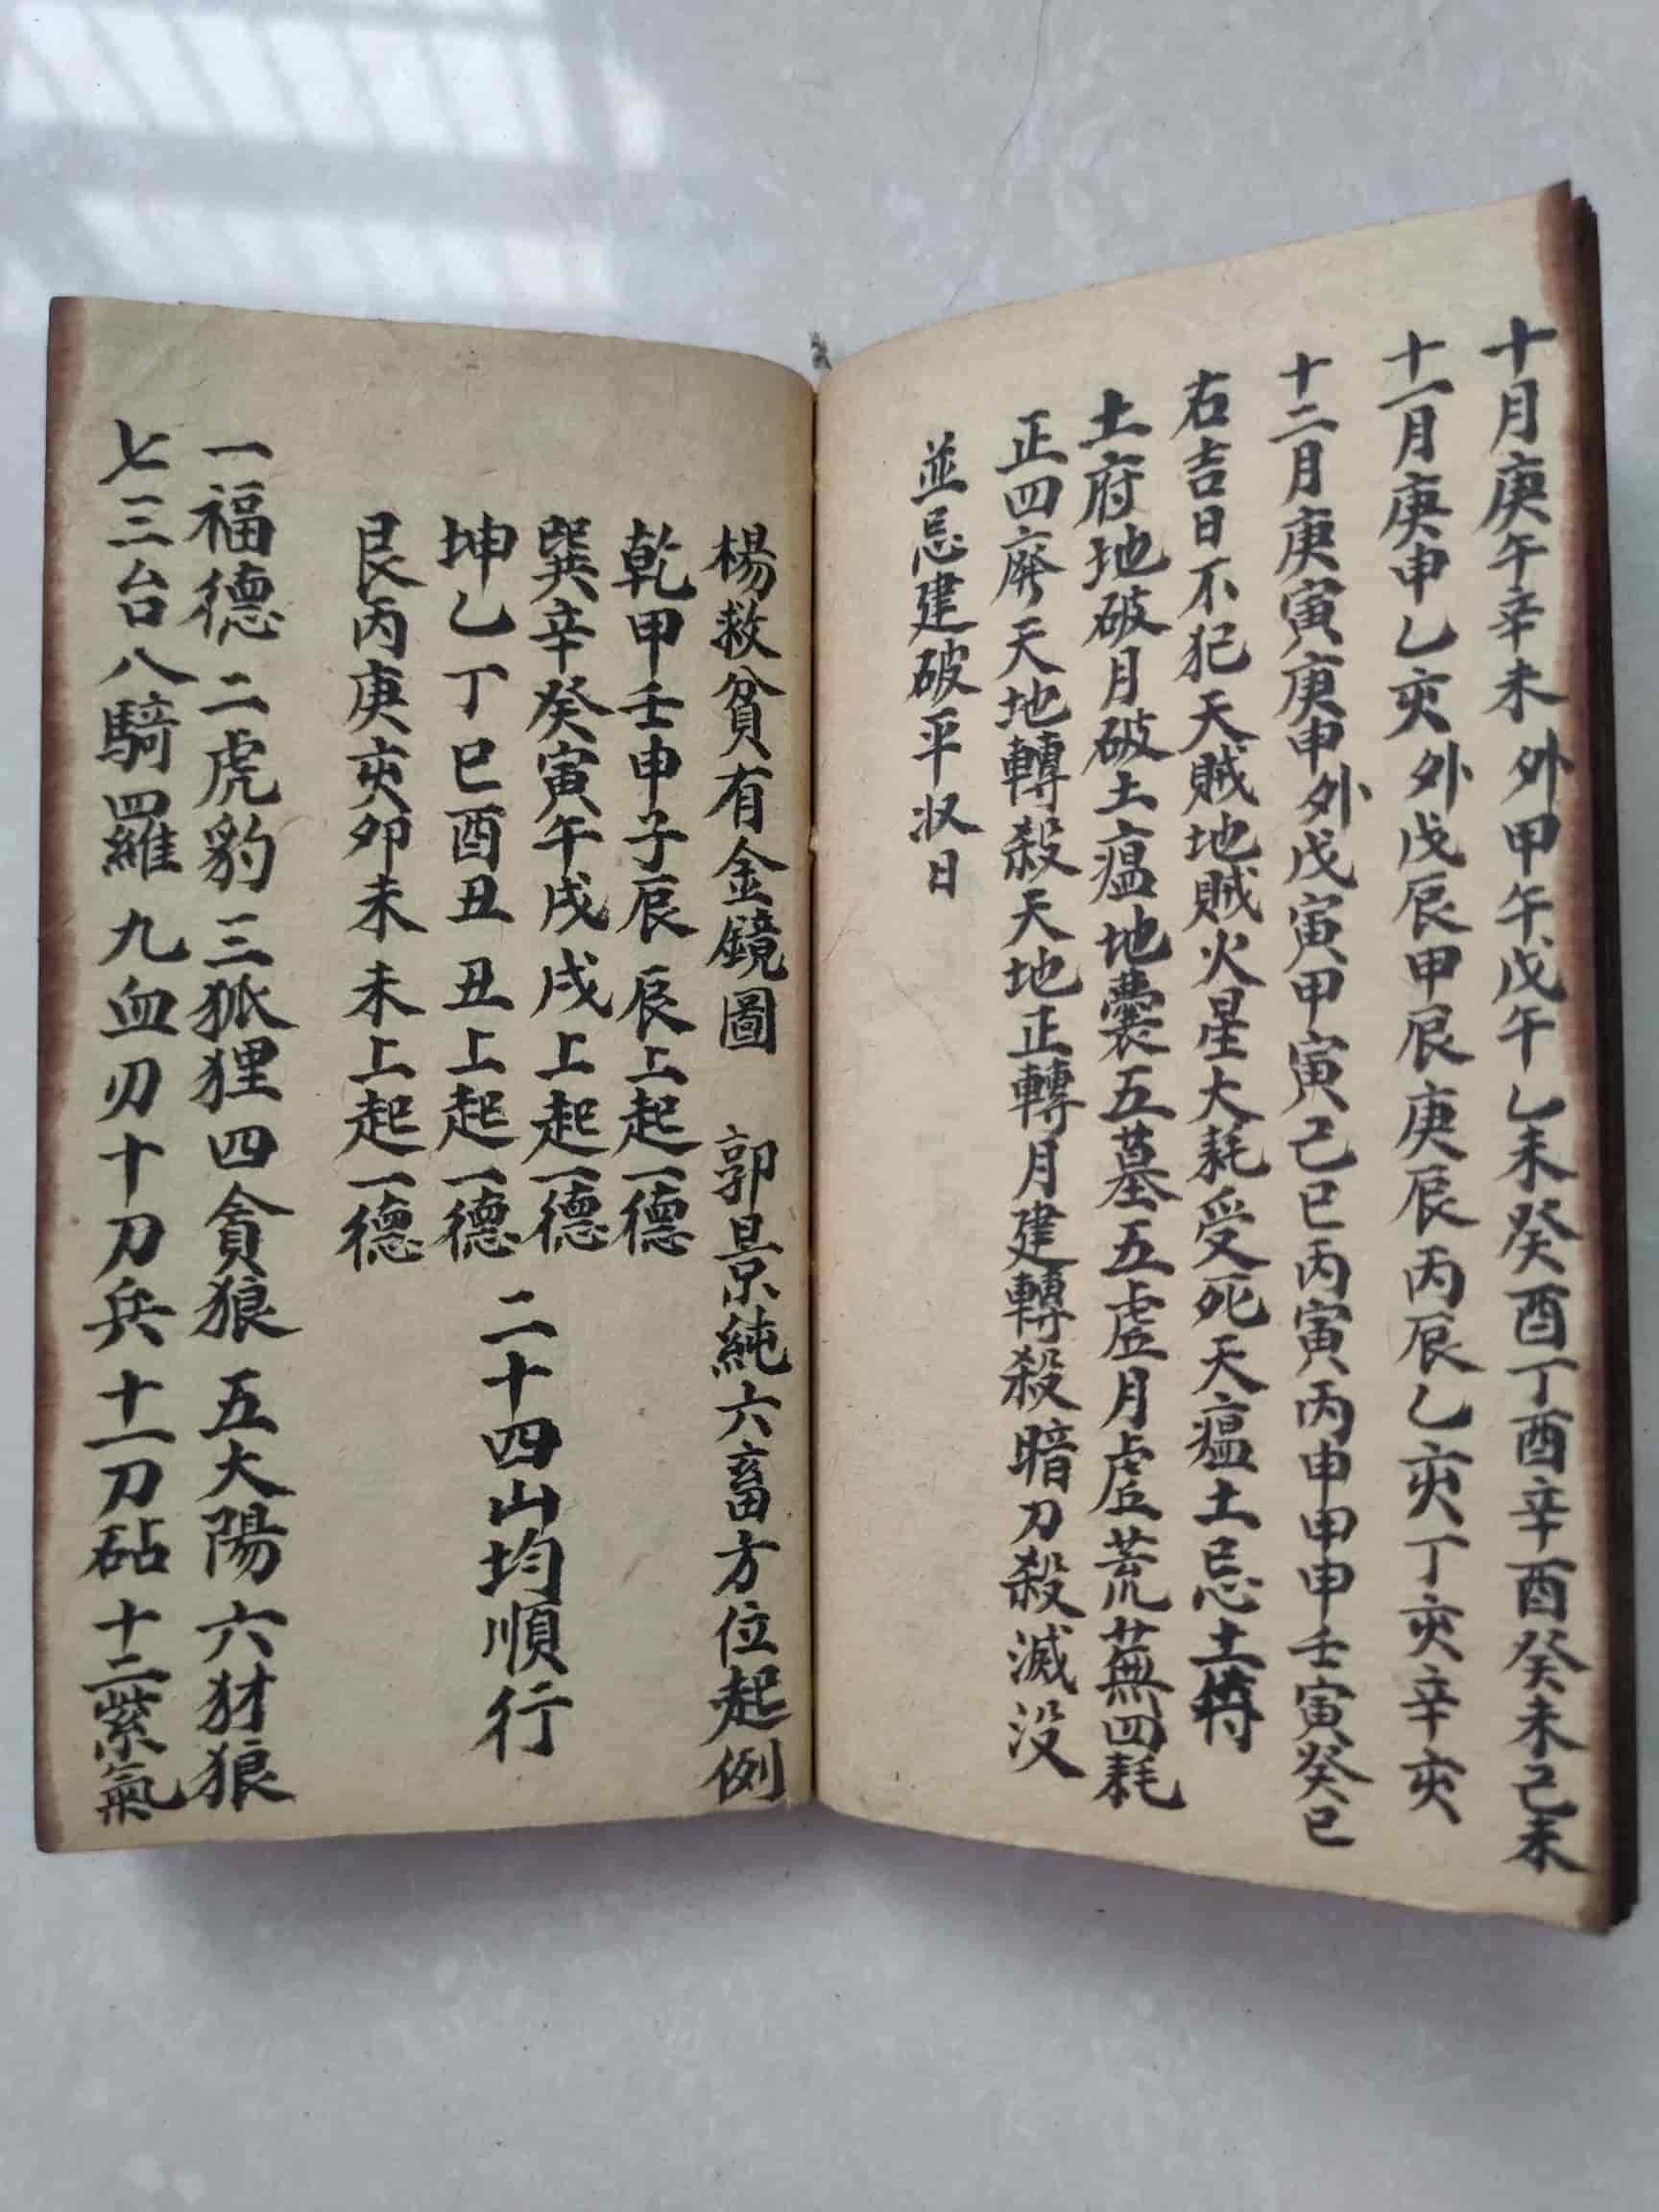 十月庚午辛未外甲午戊午乙未癸酉丁酉辛酉癸未己未
十一月庚申乙亥外戊辰甲辰庚辰丙辰乙亥丁亥辛亥
十二月庚寅庚申外戊寅甲寅己巳丙寅丙申甲申壬寅癸巳
右吉日不犯天賊地賊火星大耗受死天瘟土忌土符
土府地破月破土瘟地囊五墓五虛月虛荒蕪四耗
正四廢天地轉殺天地正轉月建轉殺暗刀殺滅没
並忌建破平收日
楊救貧有金鏡圖 郭景純六畜方位起例
乾甲壬申子辰 辰上起一德
巽辛癸寅午戌 戌上起一德
坤乙丁巳酉丑 丑上起一德
艮丙庚亥卯未 未上起一德
二十四山均順行
一福德 二虎豹 三狐狸 四貪狼 五大陽 六豺狼
七三台 八騎羅 九血刃 十刀兵 十一刀砧 十二紫氣